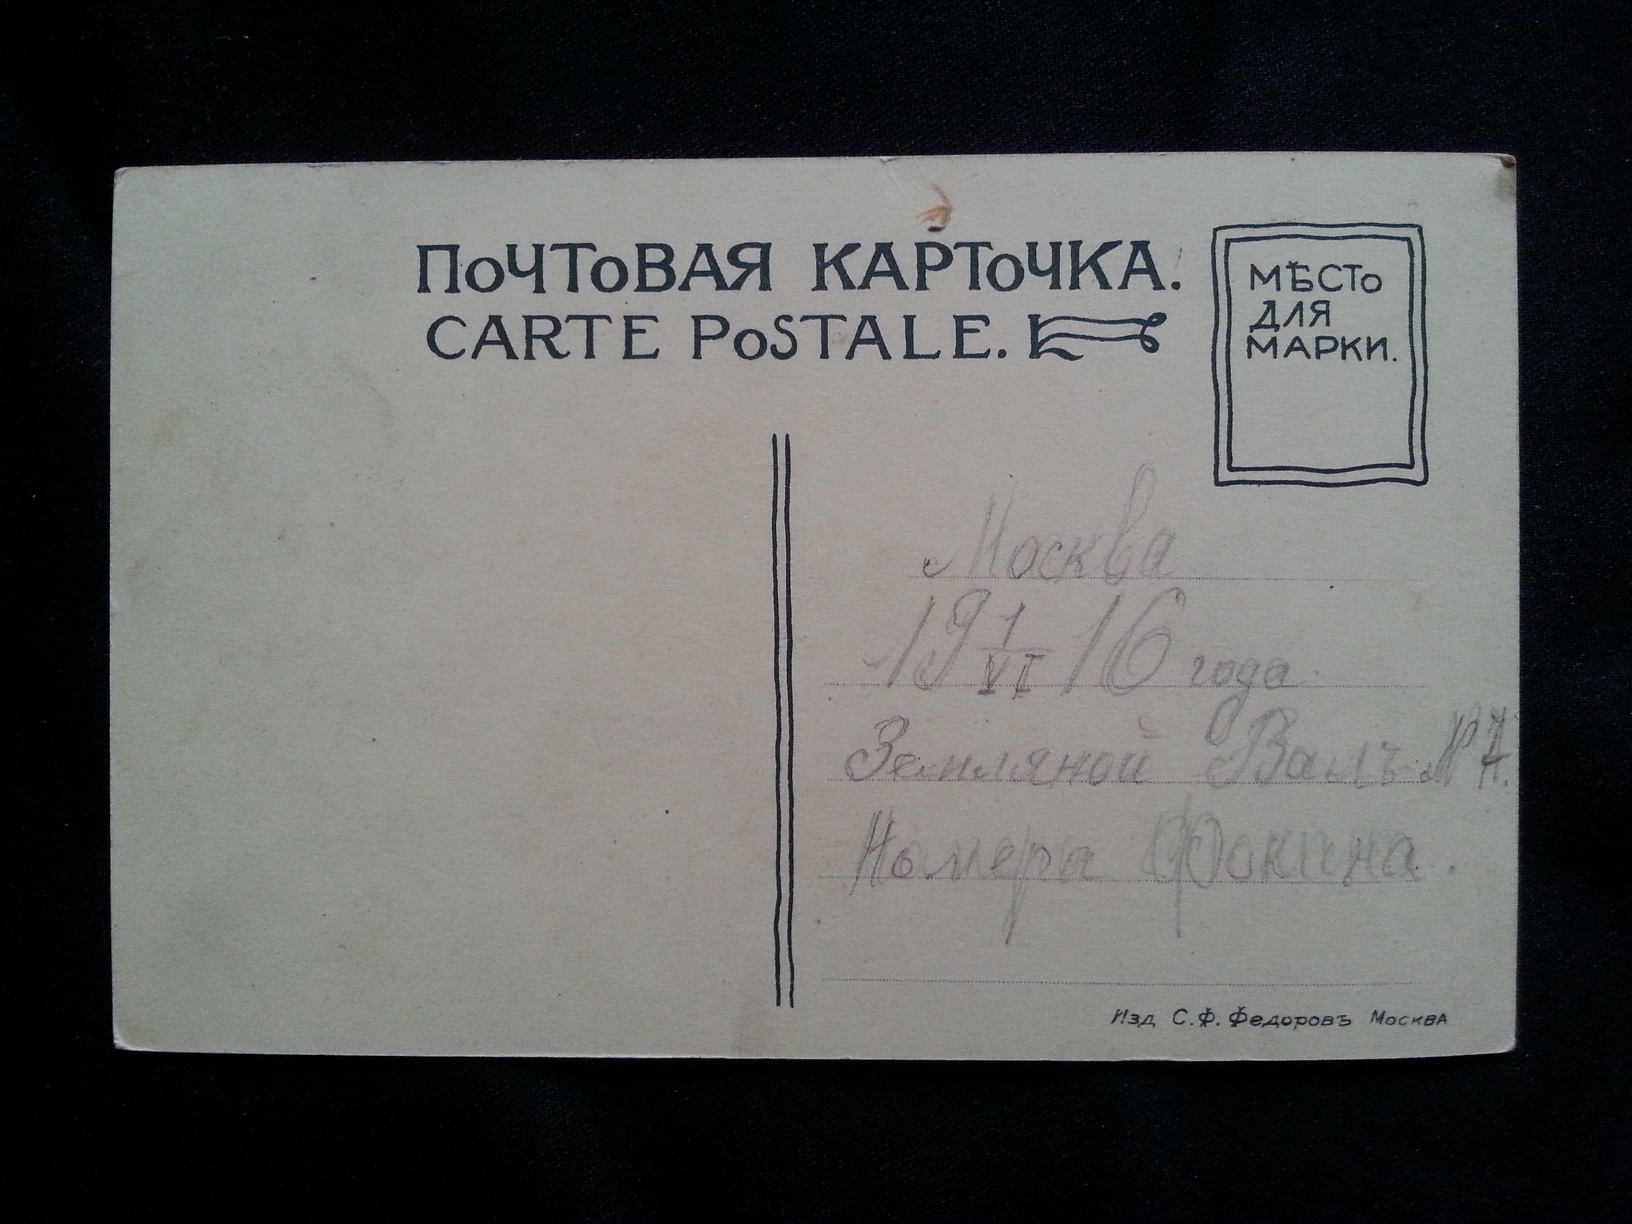 ПОЧТОВАЯ КАРТОЧКА.
CARTE POSTALE.
МѢСТО
ДЛЯ
МАРКИ.
Москва
19 1/VI 16 года
Земляной Валъ №
Номера Фокина.
Изд. С.Ф. Федоровъ Москва